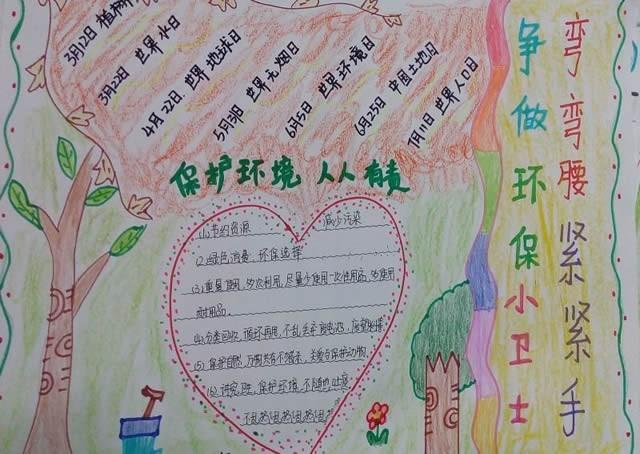 3月12日 植树
3月22日 世界水日
4月22日 世界地球日
5月31日 世界无烟日
6月5日 世界环境日
6月25日 中国土地日
7月11日 世界人口日
保护环境 人人有责
(1)节约资源 减少污染
(2)绿色消费,环保选择
(3)重复使用,多次利用,尽量少使用一次性用品,多使用
耐用品
(4)分类回收,循环再用,不乱丢弃
(5)保护自然,万物共存,关爱与保护动物
(6)讲究卫生,保护环境,不随地吐痰
弯弯腰 紧紧手
争做环保小卫士